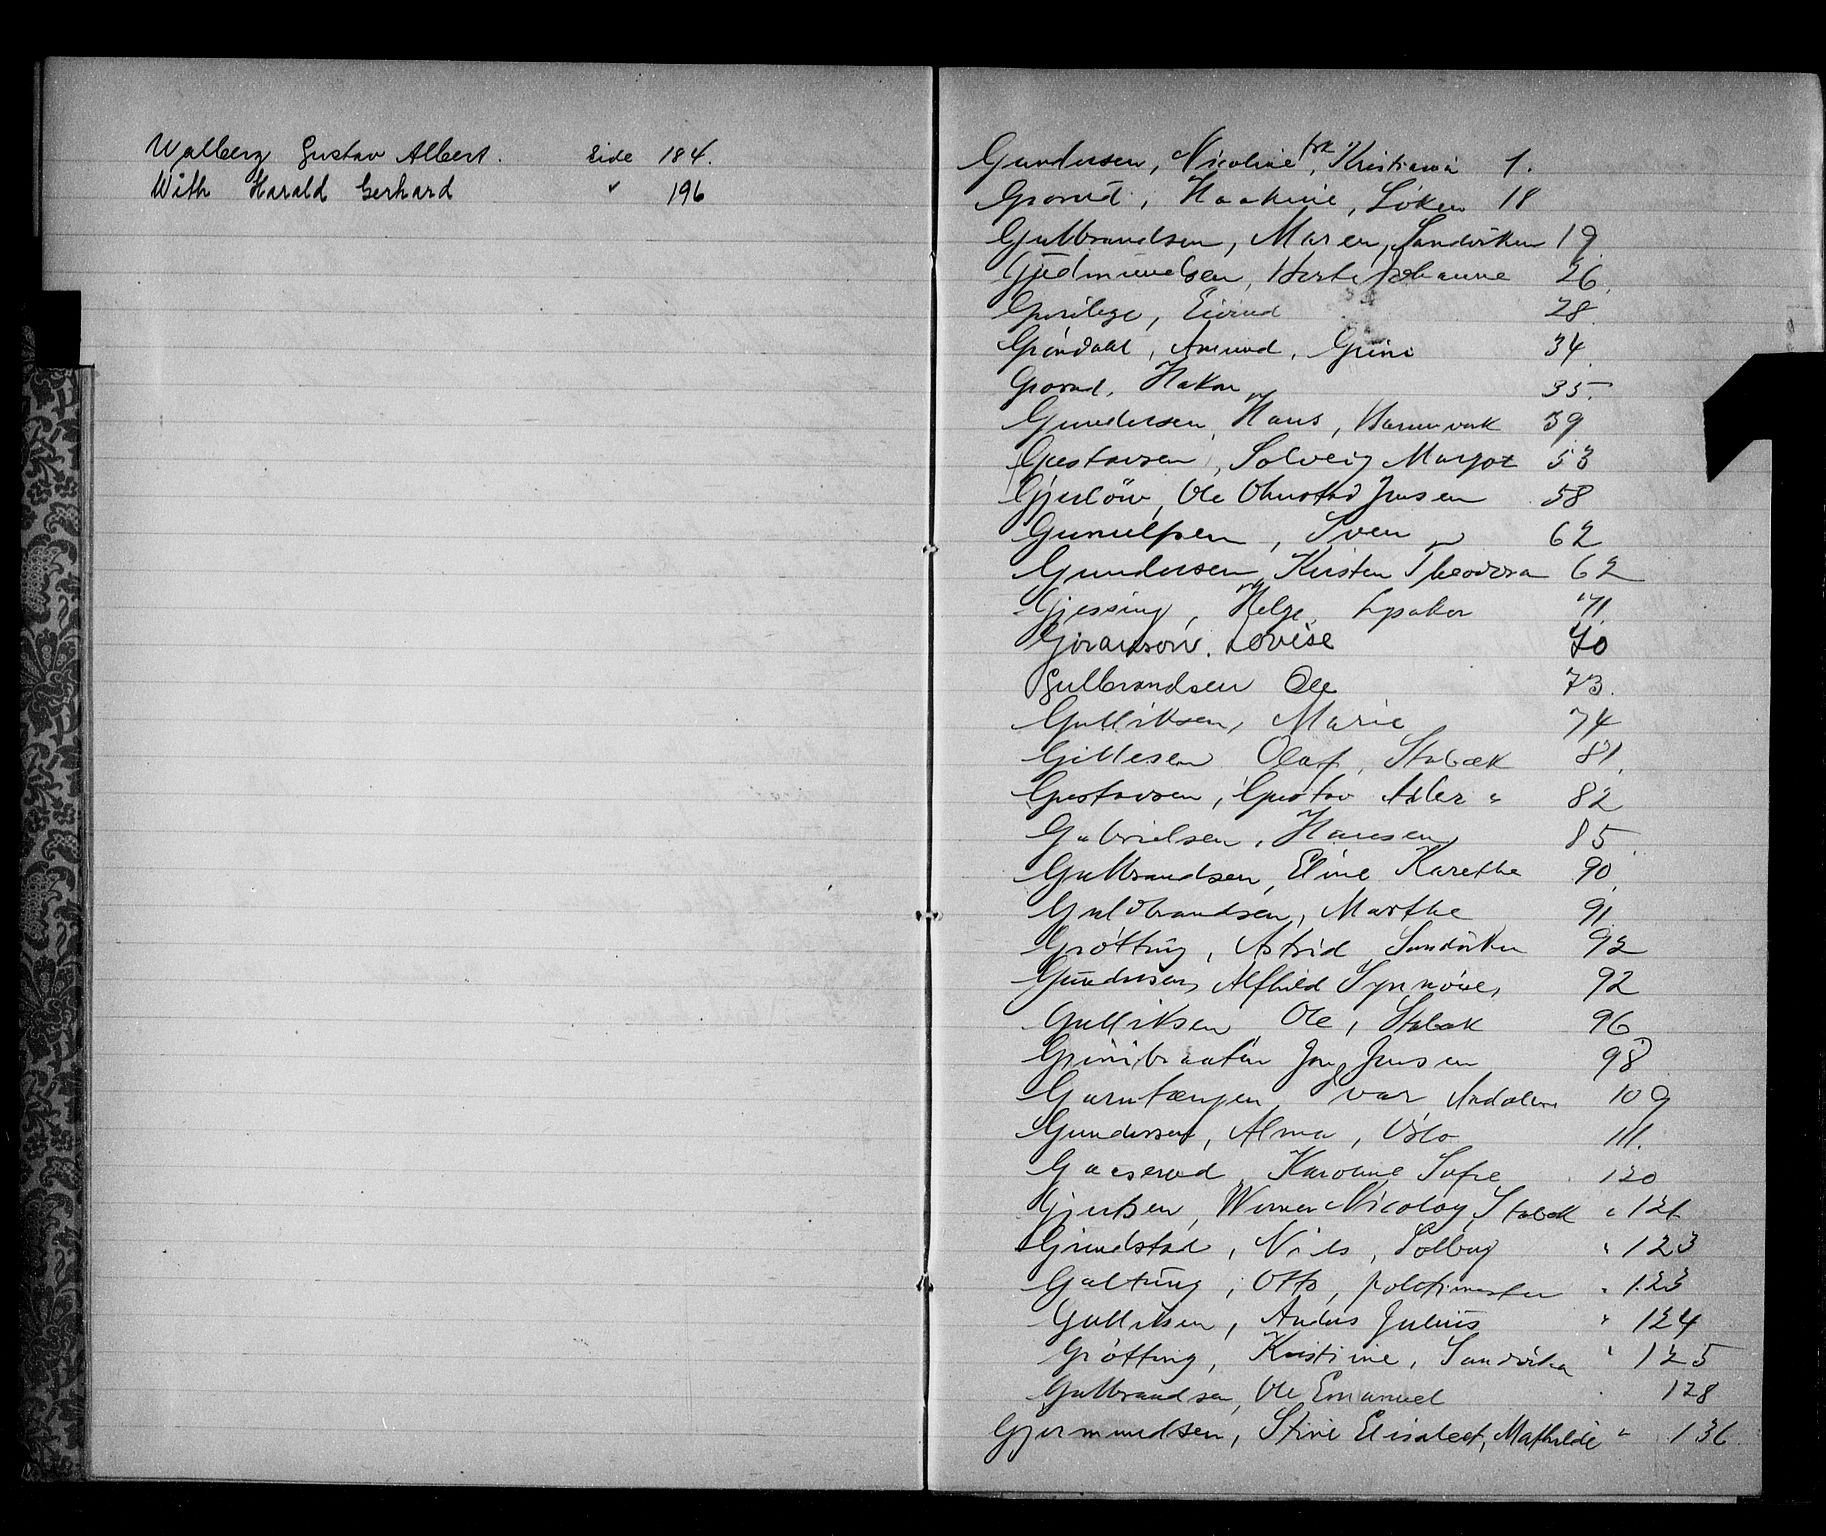 Walberg Gustav Albert. Side 184.
With Harald Gerhard " 196
Gundersen, Nicoline frk, Kristiania 1.
Grorud, Haakine, Løken 18
Gulbrandsen, Maren, Sandviken 19.
Gudmundsen, Berte Johanne 26.
Eivind 28.
Gröndahl, Amund, Grini 34.
Grorud, Hakon 35.
Gundersen, Hans, Bærumsverk 39
Gustavsen, Solveig Margot 53
Gjerlöw, Ole Ohnstad Jensen 58
Gunulfsen, Sven 62
Gundersen, Kirsten Theodora 62
Gjessing, Helge, Lysaker 71.
Göranson. Lovise 70
Gulbrandsen Ole 73.
Gulliksen, Marie 74
Gillesen Olaf, Stabæk 81.
Gustavsen, Gustav Adler " 82
Gabrielsen, Hansen 85.
Gulbrandsen, Eline Karethe 90.
Guldbrandsen, Marthe 91.
Grötting, Astrid, Sandviken 92
Gundersen, Alfhild Synnöve, 92
Gulliksen, Ole, Stabæk 96
Grinibraaten Jensen 98.
Garntangen, Ivar, 109
Gundersen, Alma, Oslo 111.
Gaaserud, Karoline Sofie 120
Werner Nicolay, Stabæk " 121
Grindstad, Nils, Solberg " 123
Galtung, Otto, politimester " 123
Gulliksen, Anders Julius " 124
Grötting, Kristine, Sandvika " 125
Gulbrandsen, Ole Emanuel 128
Gjermundsen, Stine Elisabet, Mathilde " 136.